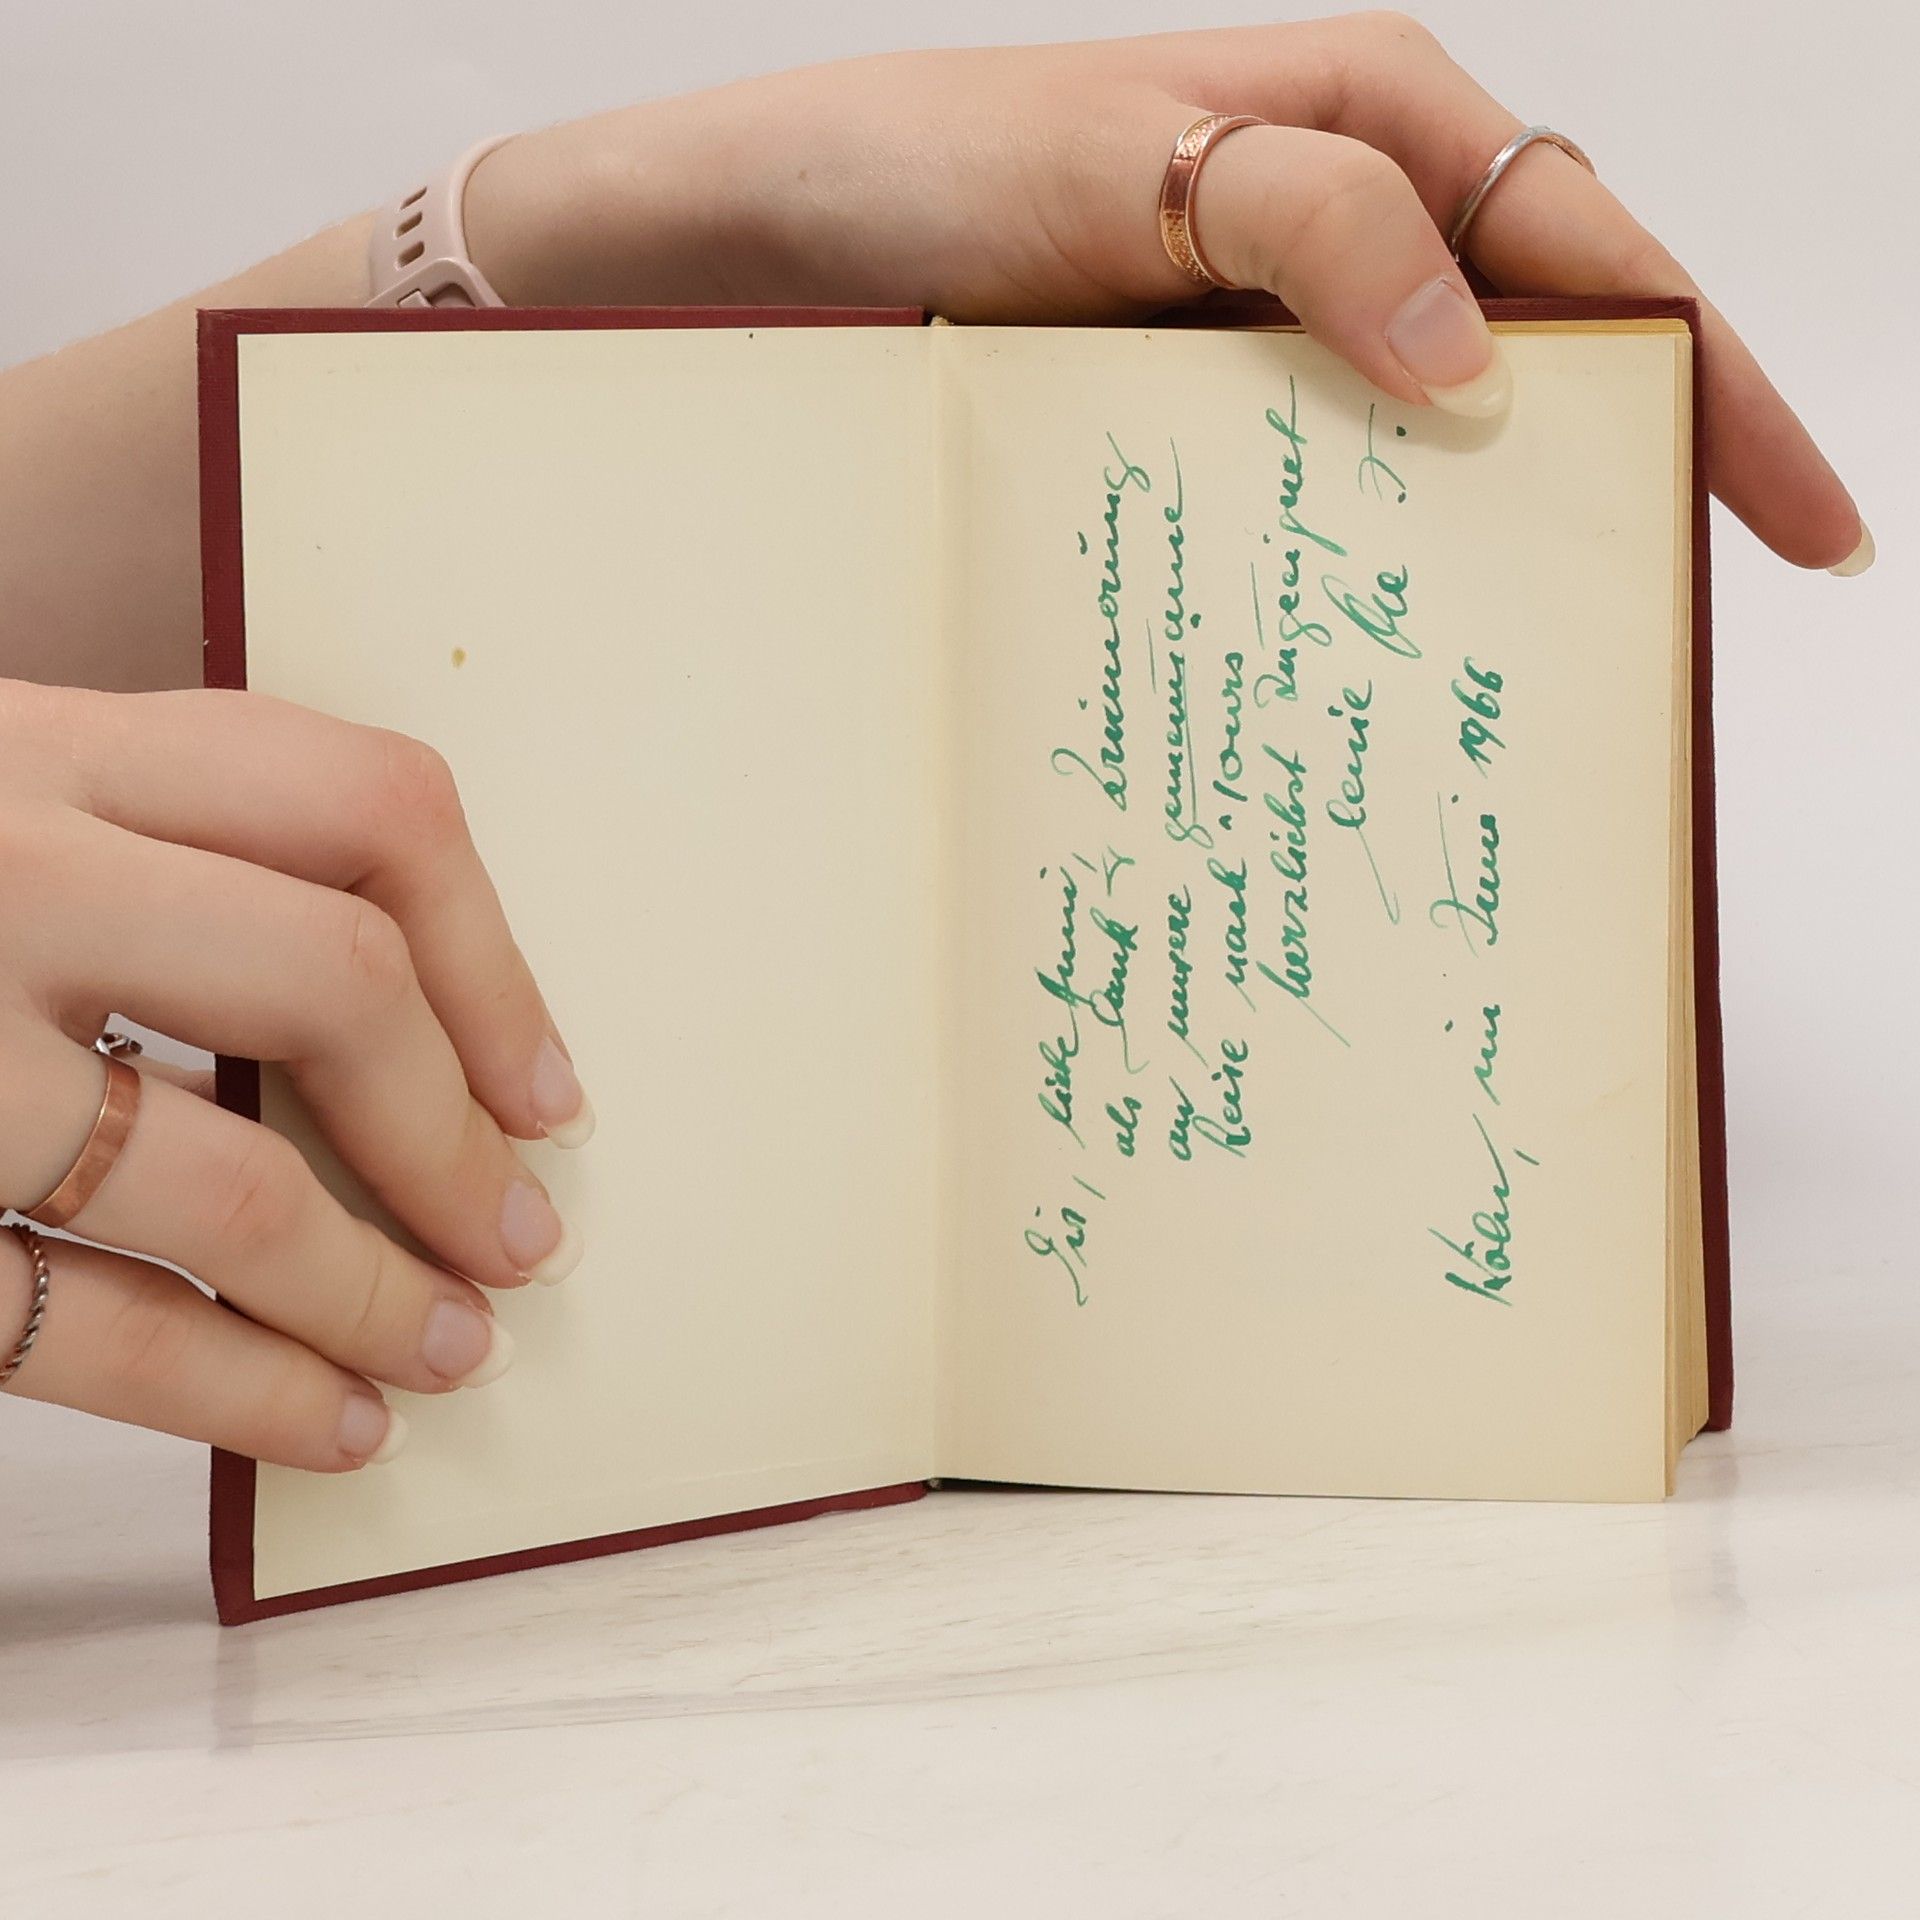 Dir, liebe
als Dank & Erinnerung
an unsere gemeinsame
Reise nach "Tours
herzlichst zugeeignet
Deine
Köln, im Juni 1966